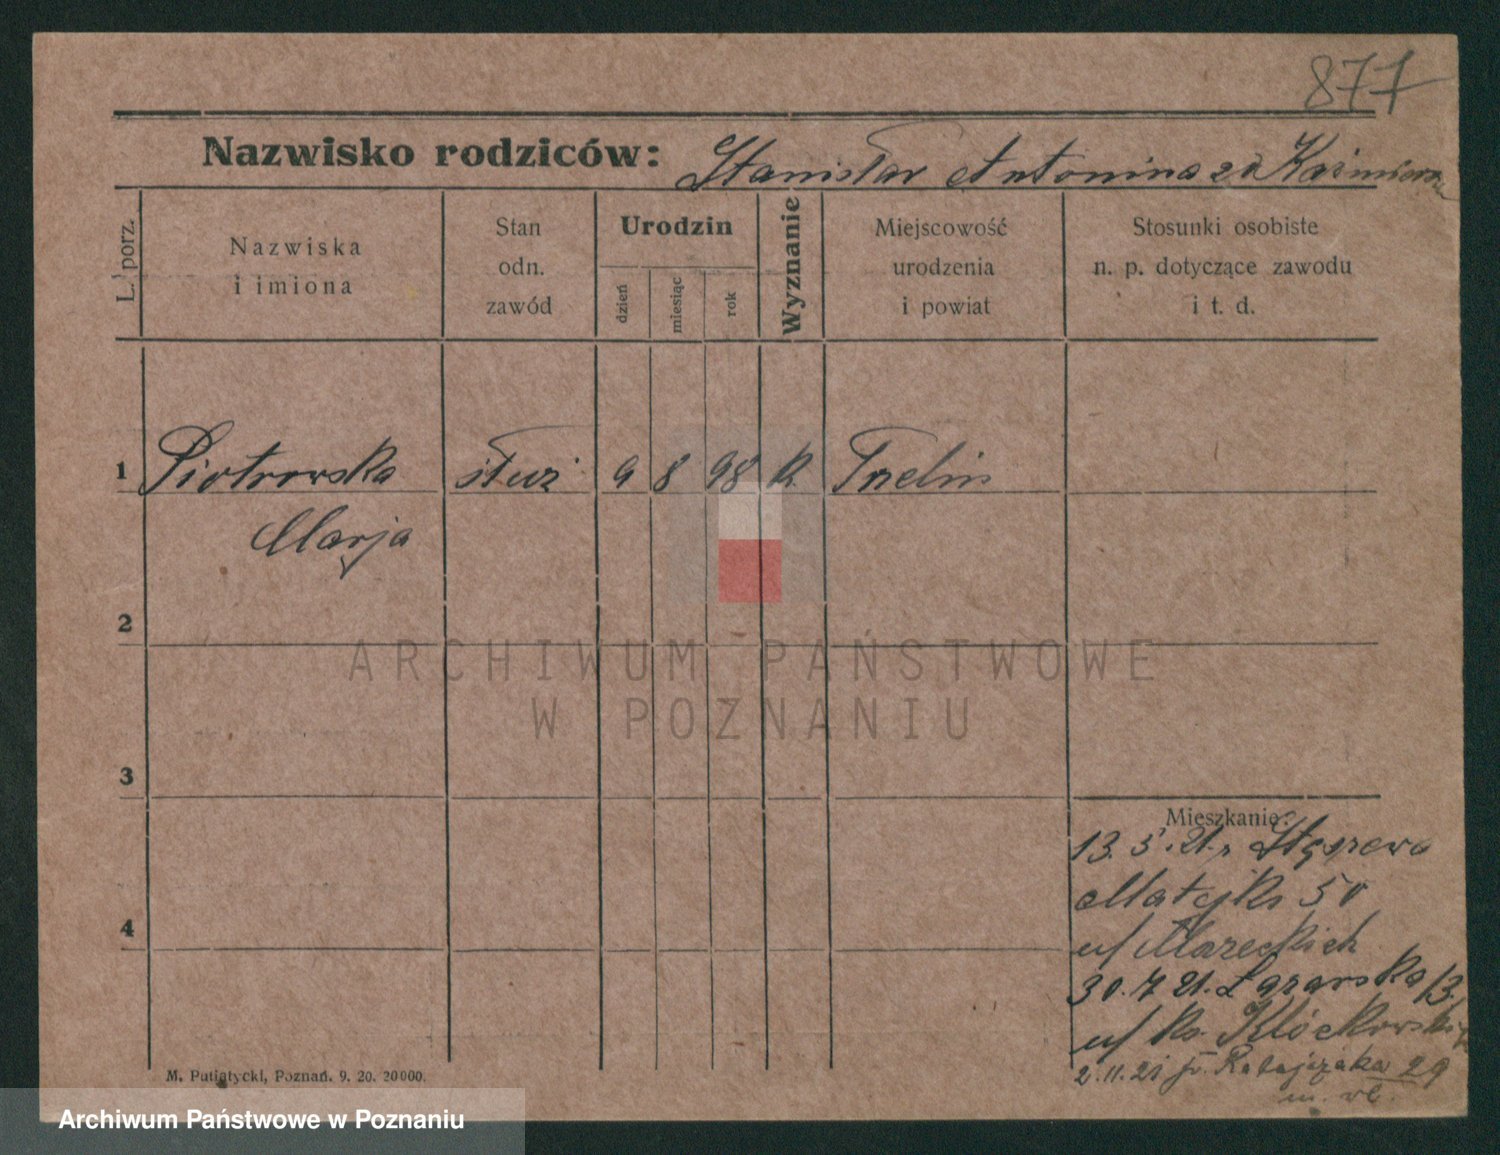 877
Nazwisko rodziców: Stanisław Antonina zd Kaźmiercz
L. porz.
Nazwiska
i imiona
Stan
odn.
zawód
Urodzin
dzień
miesiąc
rok
Wyznanie
Miejscowość
urodzenia
i powiat
Stosunki osobiste
n. p. dotyczące zawodu
i t. d.
1 Piotrowska służ 9 8 98 k.
Marja
2
ARCHIWUM PAŃSTWOWE
W POZNANIU
3
Mieszkanie:
13. 5. 21. z
Matejki 50
u/ Mareckich
4
30. 7 21. Łazarska 13.
u/ Kłóckowski
2.11.21 Fr. Ratajczaka 29
M. Putiatycki, Poznań. 9. 20. 20000.
Archiwum Państwowe w Poznaniu